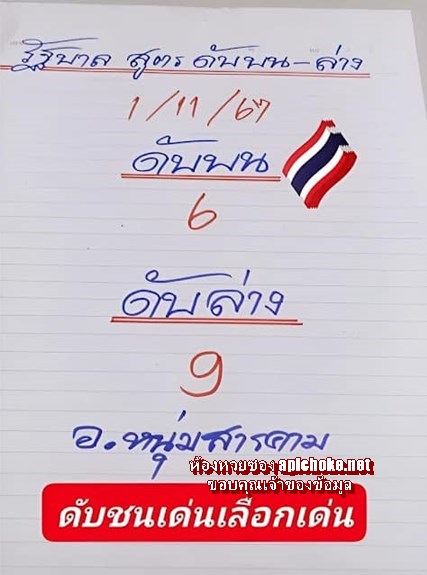 รัฐบาล สูตร ดับบน-ล่าง
1/11/67
ดับบน
6
ดับล่าง
9
อ.หนุ่มสารคาม
ห้องหวยซอง apichoke.net
ขอบคุณเจ้าของข้อมูล
ดับชนเด่นเลือกเด่น